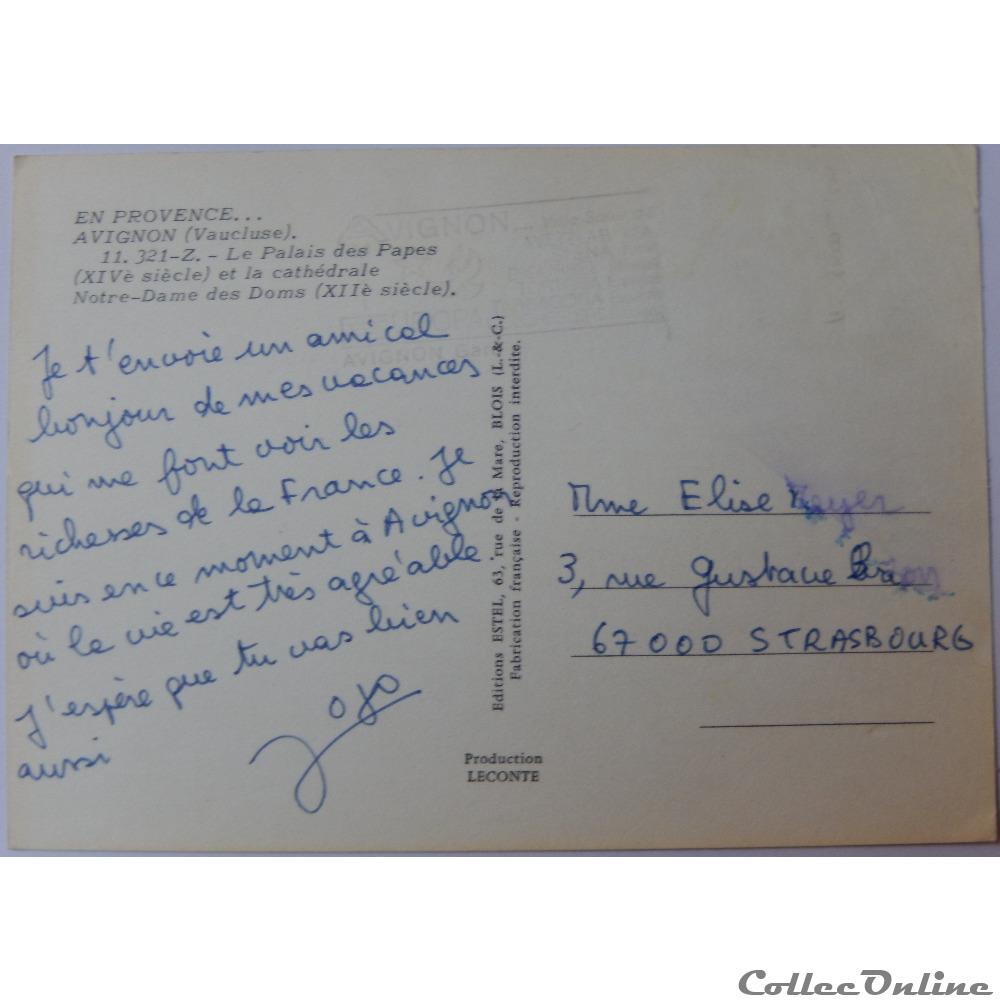 EN PROVENCE...
AVIGNON (Vaucluse).
11. 321-Z. - Le Palais des Papes
(XIVè siècle) et la cathédrale
Notre-Dame des Doms (XIIè siècle).
AVIGNON
EUROPA
AVIGNON Gare
Je t'envoie un amical
bonjour de mes vacances
qui me font voir les
richesses de la France. Je
suis en ce moment à Avignon
où la vie est très agréable.
J'espère que tu vas bien
aussi
Jojo
Editions ESTEL, 63, rue de la Mare, BLOIS (L.-&-C.)
Fabrication française - Reproduction interdite.
Production
LECONTE
Mme Elise
3, rue Gustave
67000 STRASBOURG
CollecOnline